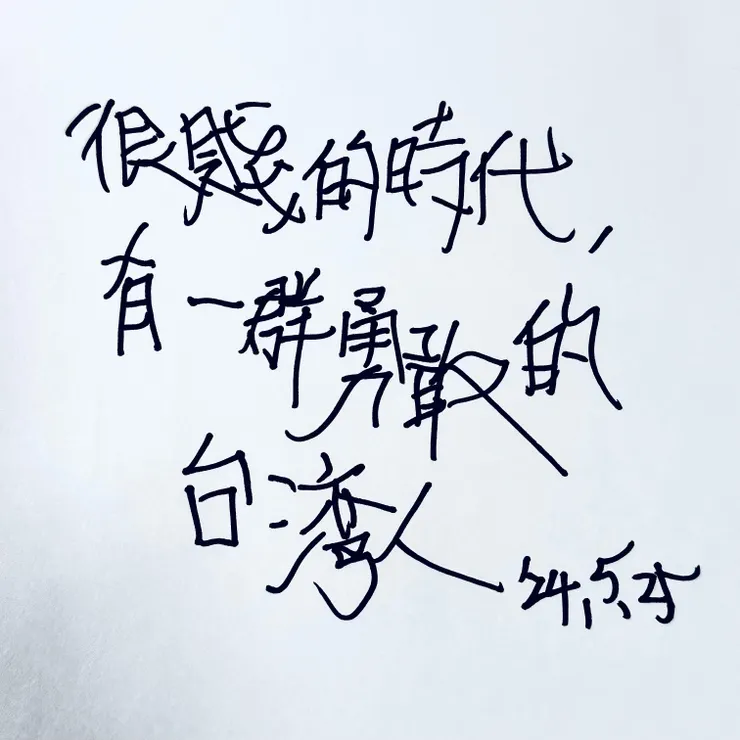 很賤的時代,
有一群勇敢的
台湾人 24.5.25